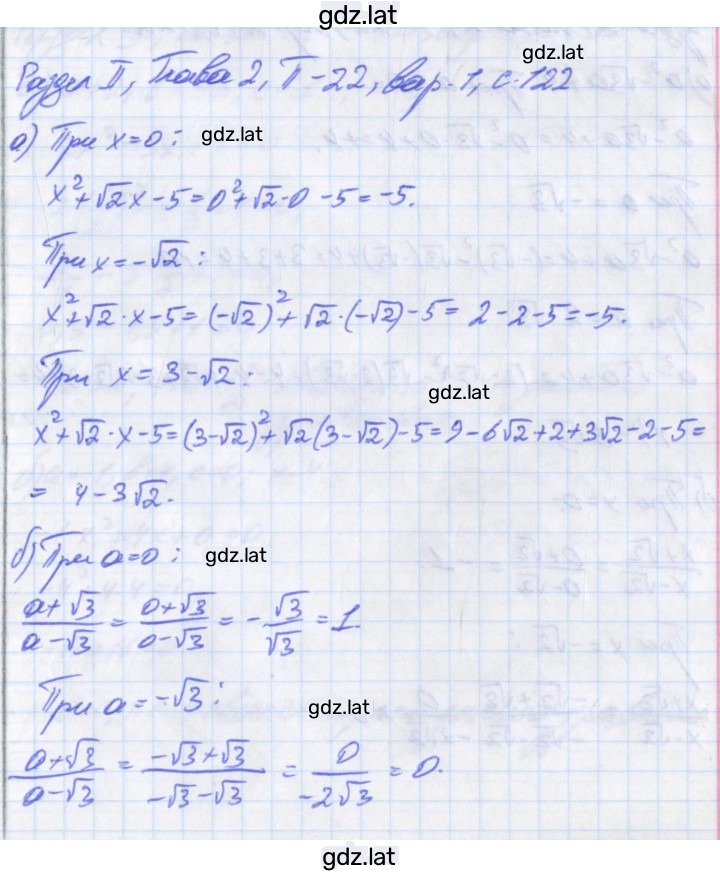 gdz.lat
gdz.lat
Раздел II, Глава 2, П-22, вар. 1, с. 122
а) При x=0: gdz.lat
x²+√2x-5=0²+√2·0-5=-5.
При x=-√2:
x²+√2·x-5=(-√2)²+√2·(-√2)-5=2-2-5=-5.
При x=3-√2:
gdz.lat
x²+√2·x-5=(3-√2)²+√2(3-√2)-5=9-6√2+2+3√2-2-5=
= 4-3√2.
б) При a=0: gdz.lat
(a+√3)/(a-√3) = (0+√3)/(0-√3) = -√3/√3 = 1.
При a=-√3: gdz.lat
(a+√3)/(a-√3) = (-√3+√3)/(-√3-√3) = 0/(-2√3) = 0.
gdz.lat